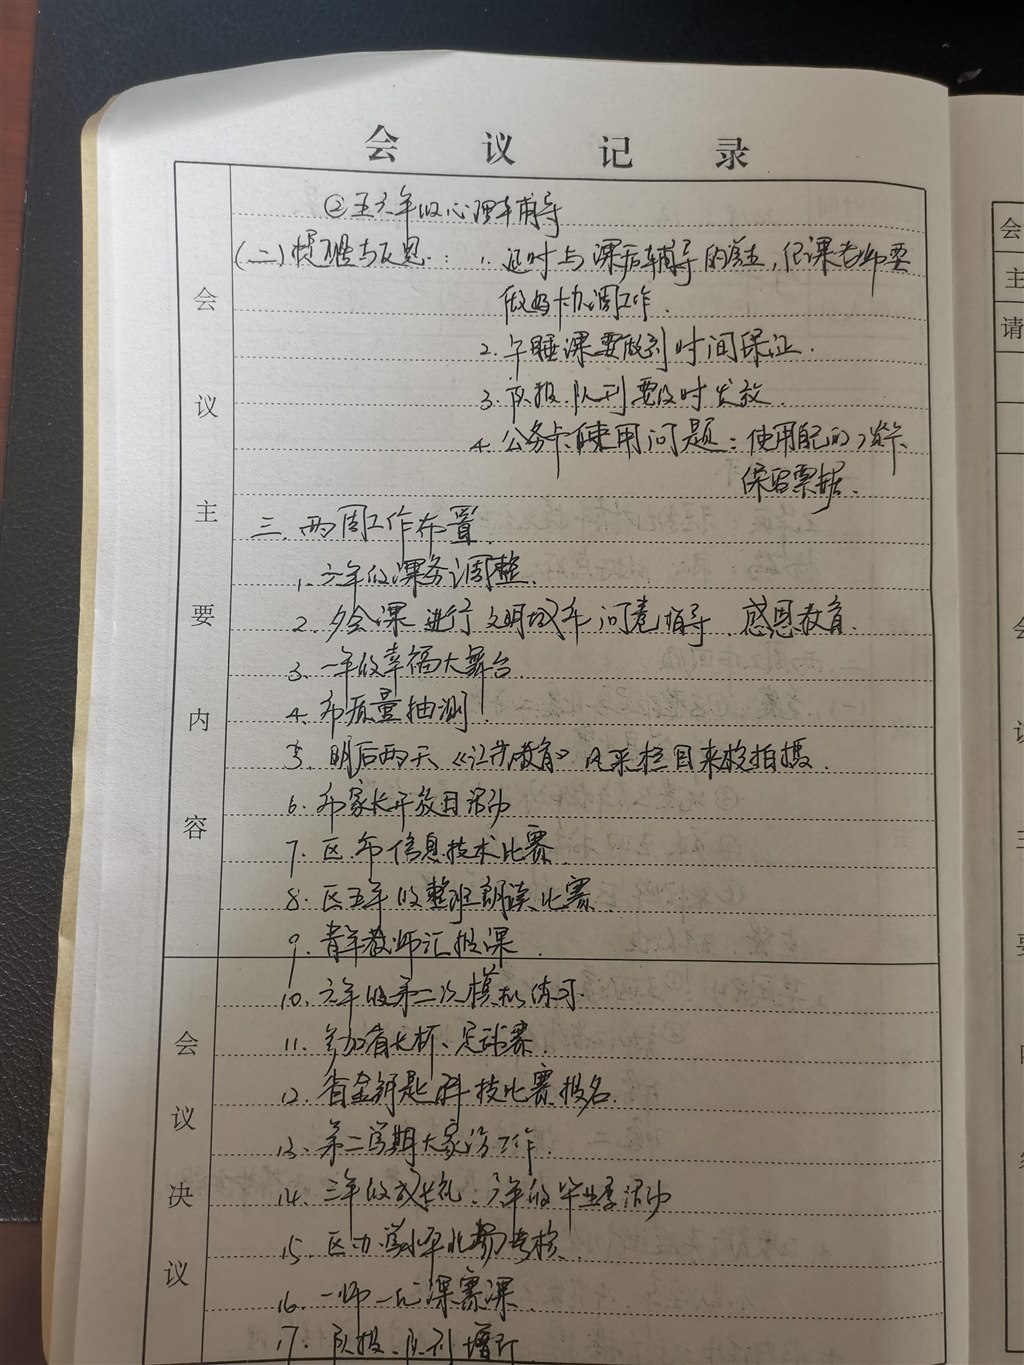 会议记录
会议主要内容
②五六年级心理辅导
(二)提醒与反思：1. 延时与课后辅导的
做好协调工作.
2. 午睡课要做到时间保证.
3. 队报、队刊要及时发放.
4. 公务卡使用问题：使用配的
保留票据.
三、两周工作布置.
1. 六年级课务调整.
2. 夕会课进行文明城市问卷指导、感恩教育.
3. 一年级幸福大舞台.
4. 市质量抽测
5. 明后两天《江苏教育》风采栏目来校拍摄.
6. 市家长开放日活动
7. 区、市信息技术比赛.
8. 区五年级整班朗读比赛.
9. 青年教师汇报课.
会议决议
10. 六年级第二次模拟练习.
11. 参加省长杯、足球赛.
12. 省金钥匙科技比赛报名.
13. 第二学期大家访工作.
14. 三年级成长礼：六年级毕业季活动
15. 区办学水平考核.
16. 一师一优课赛课.
17. 队报、队刊增订
会
主
请